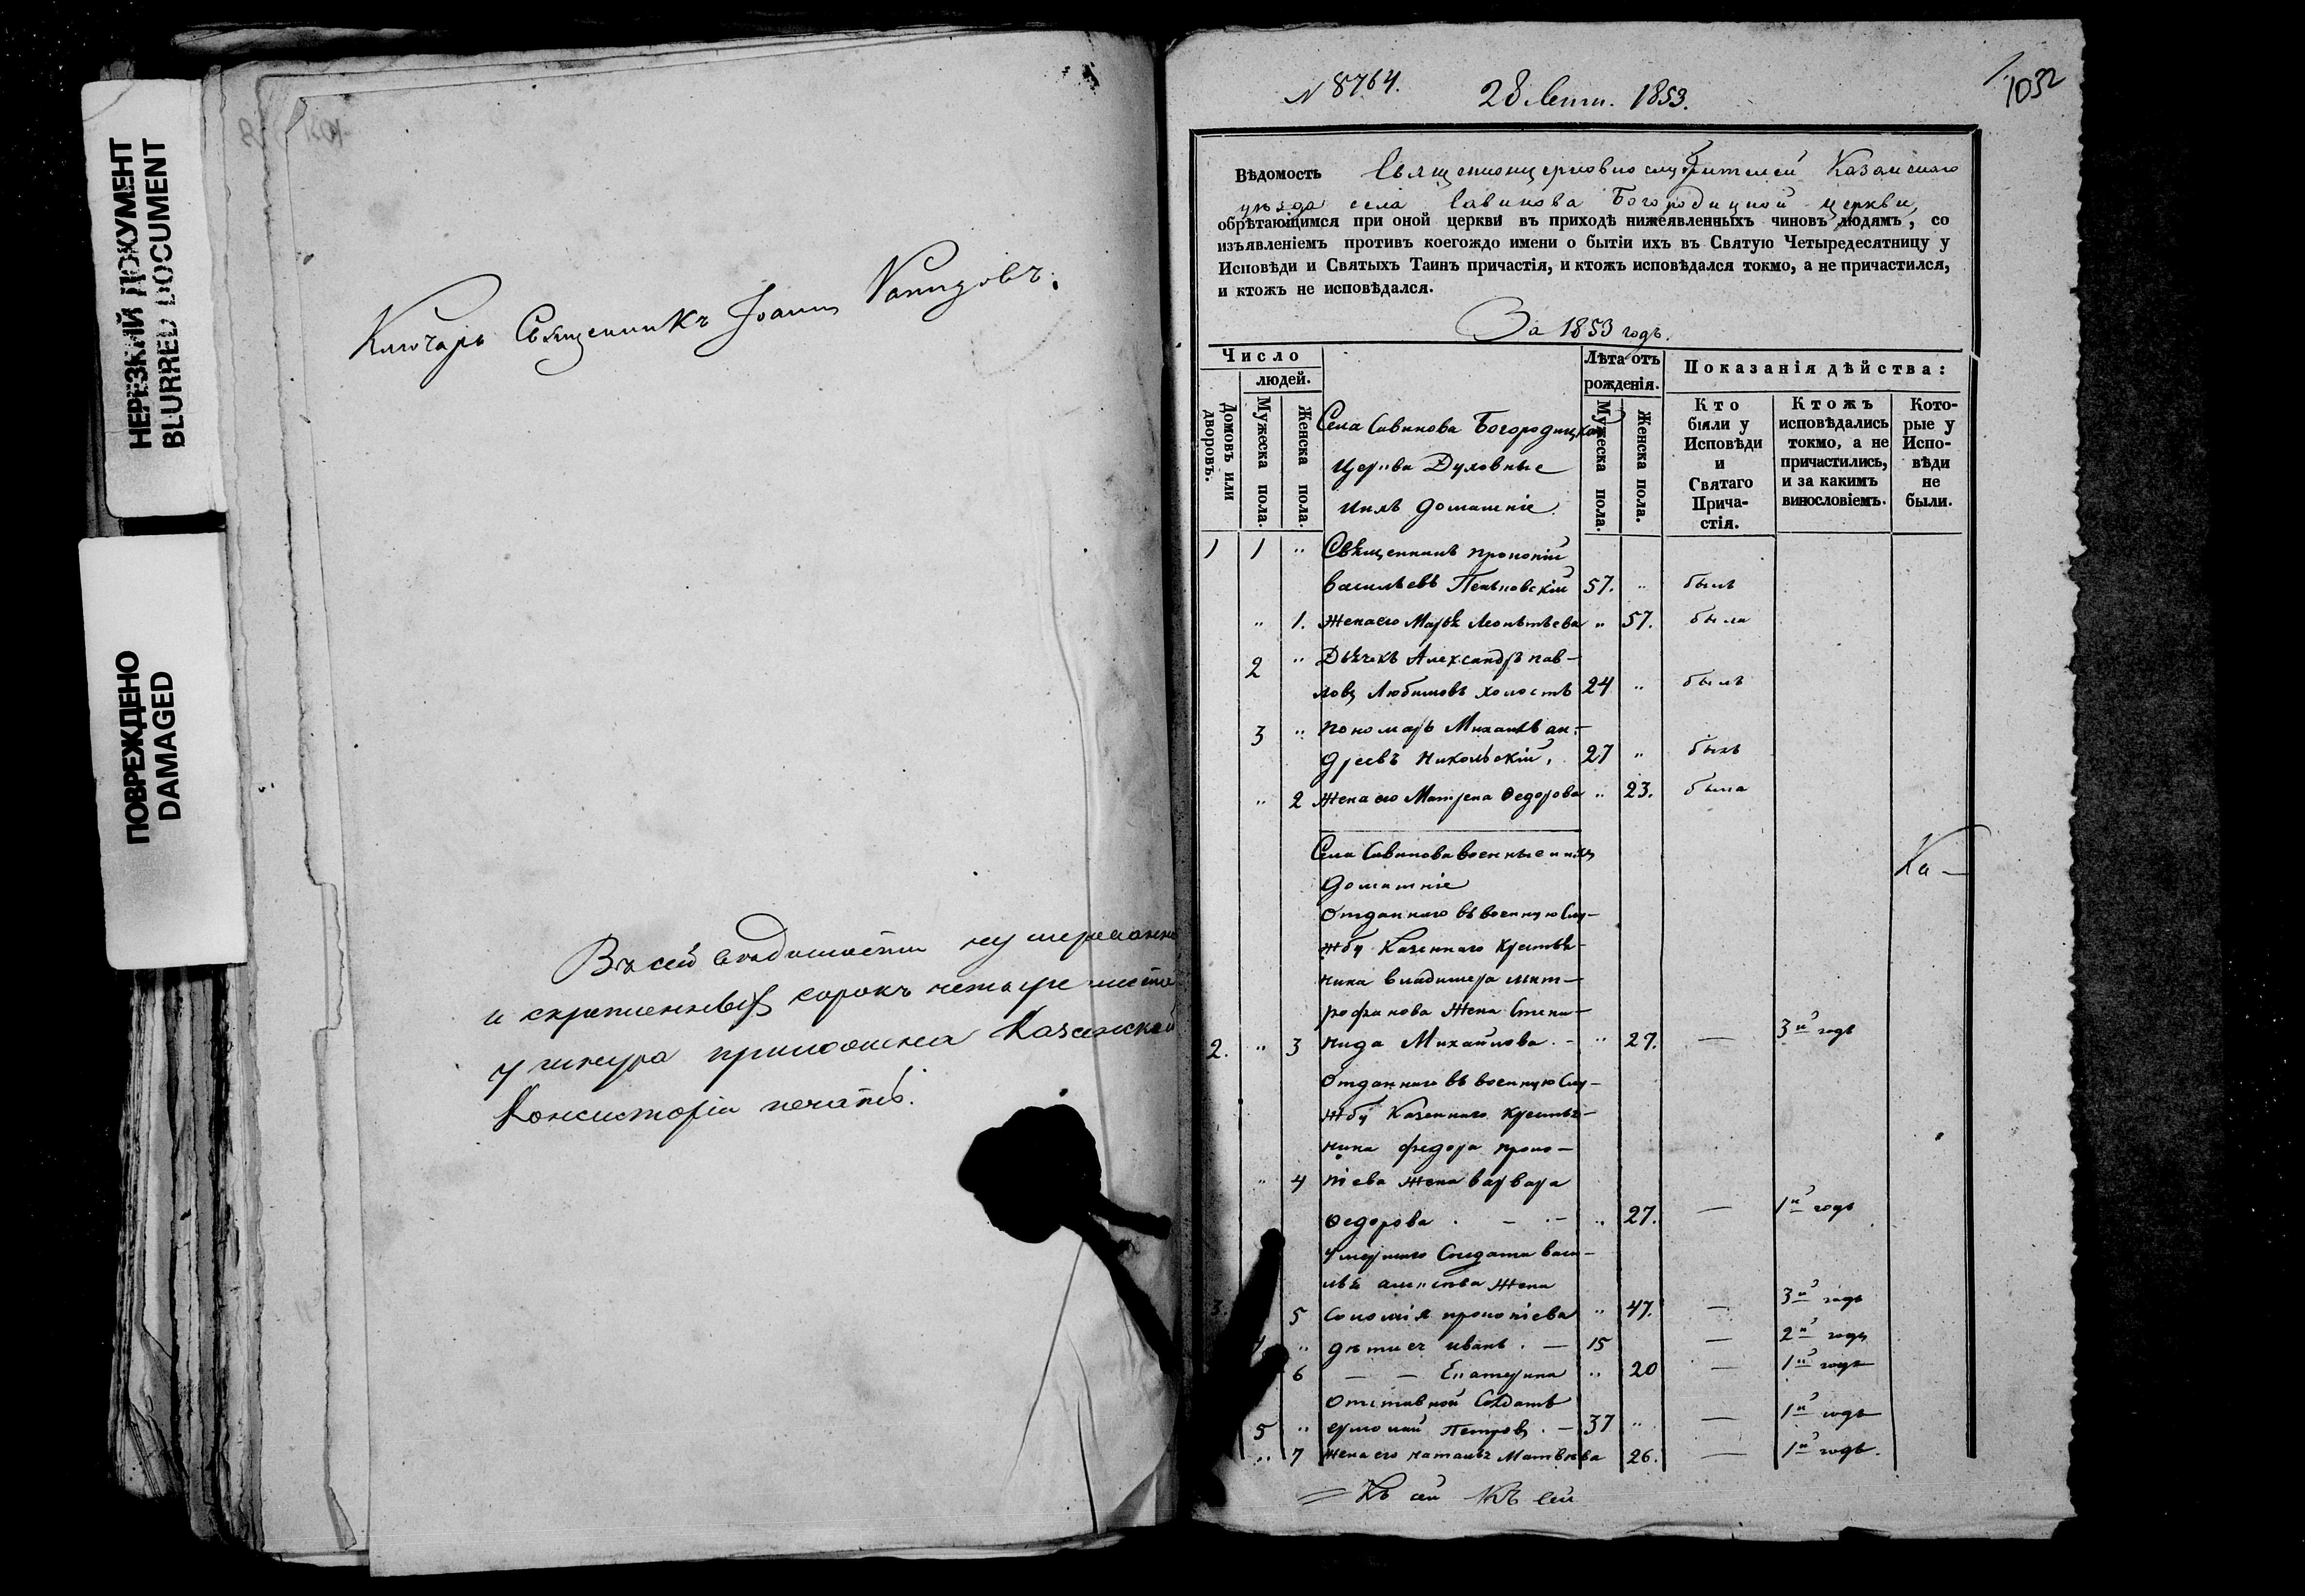 НЕРЕЗКИЙ ДОКУМЕНТ
BLURRED DOCUMENT
ПОВРЕЖДЕНО
DAMAGED
Ключарь Священникъ Іоаннъ
Въ сей вѣдомости нумерованныхъ
и скрѣпленныхъ сорокъ четыре листа
у шнура приложена Казанской
Консисторіи печать.
N 8764. 28 Сент. 1853.
1032
Вѣдомость Священноцерковнослужителей Казанскаго
уѣзда села Савинова Богородицкой церкви,
обрѣтающимся при оной церкви въ приходѣ нижеявленныхъ чиновъ людямъ, со
изъявленіемъ противъ коегождо имени о бытіи ихъ въ Святую Четыредесятницу у
Исповѣди и Святыхъ Таинъ причастія, и ктожъ исповѣдался токмо, а не причастился,
и ктожъ не исповѣдался.
За 1853 годъ.
Число
людей.
Домовъ или дворовъ.
Мужеска пола.
Женска пола.
Села Савинова Богородицкой
Церкви Духовные
ихъ домашніе
Лѣта отъ
рожденія.
Мужеска пола.
Женска пола.
Показанія дѣйства:
Кто
были у
Исповѣди
и
Святаго
Прича-
стія.
Ктожъ
исповѣдались
токмо, а не
причастились,
и за какимъ
винословіемъ.
Кото-
рые у
Испо-
вѣди
не
были.
1 1 " Священникъ Прокопій
Васильевъ Пеньковскій 57. " былъ
" 1. Жена его Марья Леонтьева " 57. была
2 " Дьячекъ Александръ Пав-
ловъ Любимовъ холостъ 24 " былъ
3 " Пономарь Михаилъ Ан-
дреевъ Никольскій, 27 " былъ
" 2 Жена его Матрена Ѳедорова " 23. была
Села Савинова военные и ихъ
домашніе
Ка —
Отданнаго въ военную Слу-
жбу Казеннаго Крестья-
нина Владимера Мит-
рофанова Жена Степа-
2. " 3 нида Михайлова. - " 27. — 3й годъ
Отданнаго въ военную Слу-
жбу Казеннаго Крестья-
нина Федора Проко-
" 4 піева Жена Варвара
Ѳедорова . - - " 27. — 1й годъ
Умершаго Солдата Васи-
лья Алексѣева Жена
3. 5 Соломія Прокопіева " 47. — 3й годъ
4 " дѣти ея Иванъ. — 15 — 2й годъ
6 — — Екатерина " 20 — 1й годъ
Отставной Солдатъ
5 " Ермолай Петровъ. — 37 " — 1й годъ
" 7 Жена его Наталья Матвѣева 26. — 1й годъ.
Къ сей Къ сей